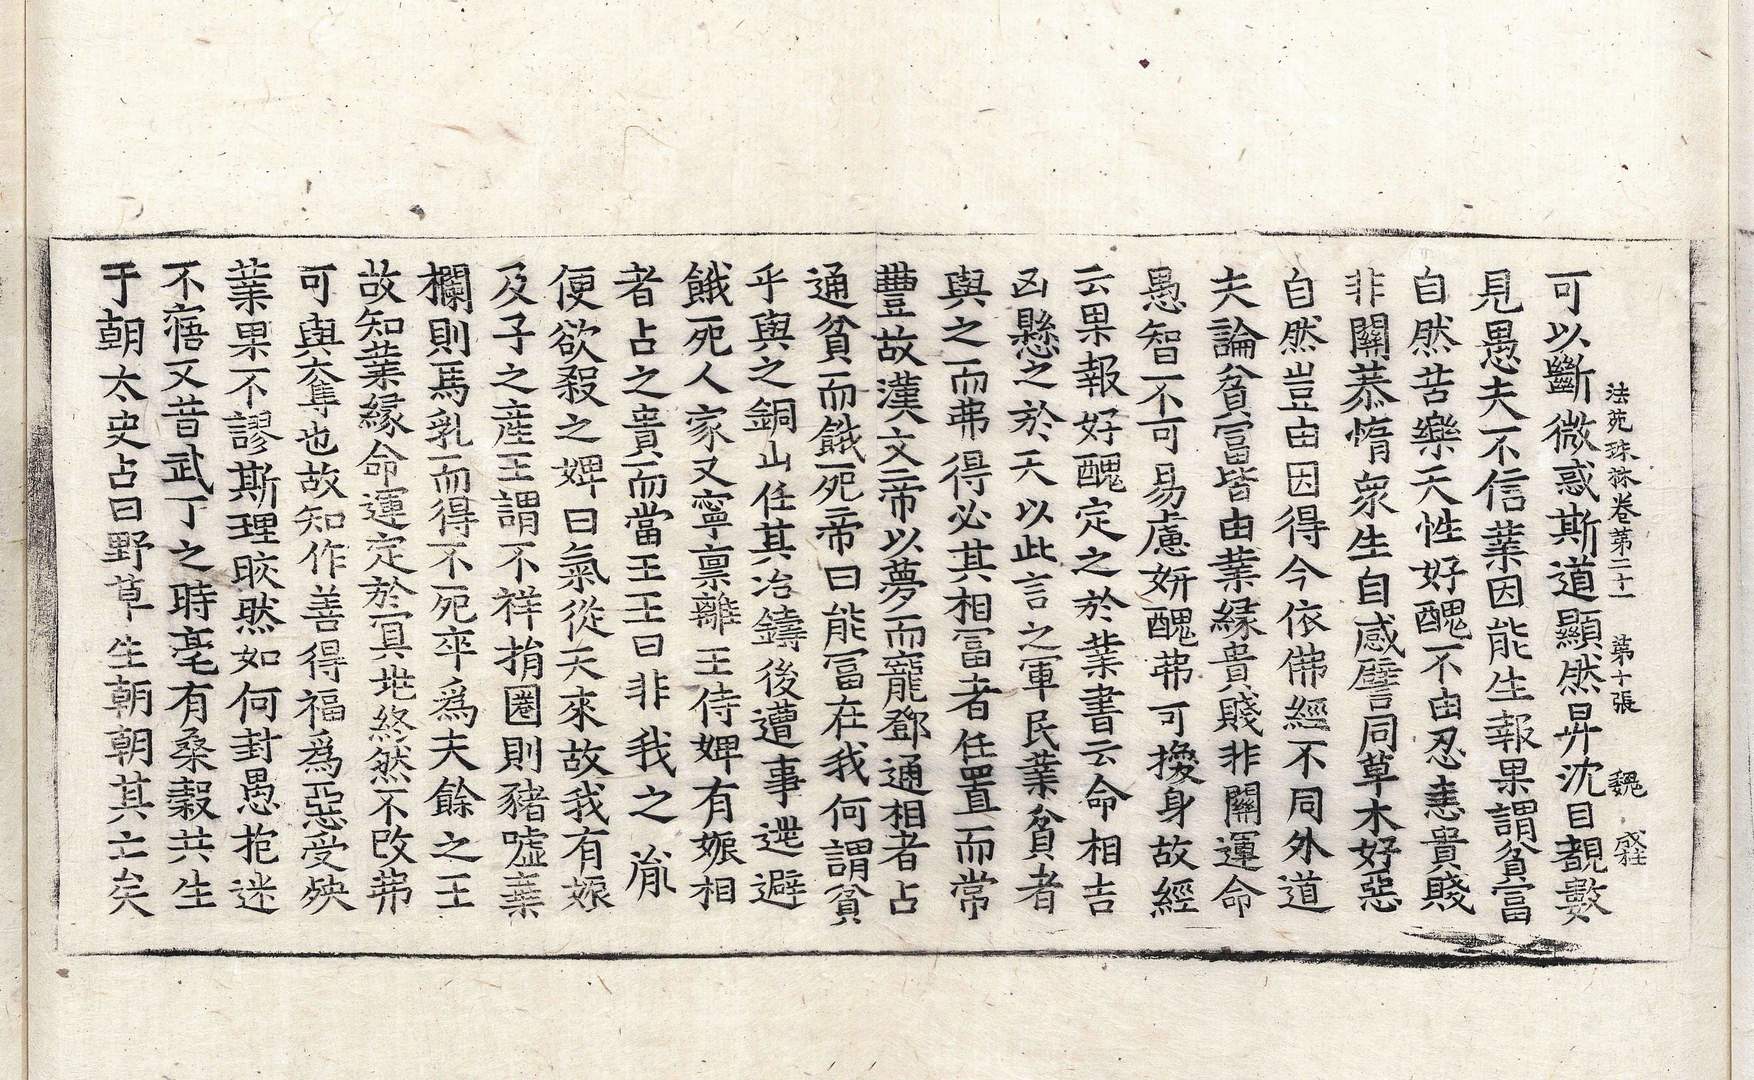 法苑珠林卷第二十一 第十張 魏
可以斷微惑斯道顯然昇沈目覩數
見愚夫不信業因能生報果謂貧富
自然苦樂天性好醜不由忍恚貴賤
非關恭惰衆生自感譬同草木好惡
自然豈由因得今依佛經不同外道
夫論貧富皆由業緣貴賤非關運命
愚智不可易慮妍醜弗可換身故經
云果報好醜定之於業書云命相吉
凶懸之於天以此言之軍民業貧者
與之而弗得必其相冨者任置而常
豐故漢文帝以夢而寵鄧通相者占
通貧而餓死帝曰能冨在我何謂貧
乎與之銅山任其冶鑄後遭事逃避
餓死人家又寧禀離王侍婢有娠相
者占之貴而當王王曰非我之胤
便欲殺之婢曰氣從天來故我有娠
及子之產王謂不祥捐圈則豬噓棄
欄則馬乳而得不死卒爲夫餘之王
故知業緣命運定於冥地終然不改弗
可與奪也故知作善得福爲惡受殃
業果不謬斯理皎然如何封愚抱迷
不寤又昔武丁之時亳有桑穀共生
于朝太史占曰野草生朝朝其亡矣